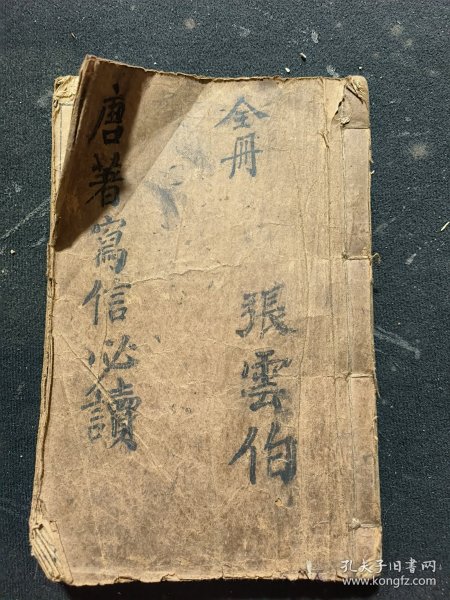 全册
張雲伯
唐著寫信必讀
孔夫子旧书网
www.kongfz.com